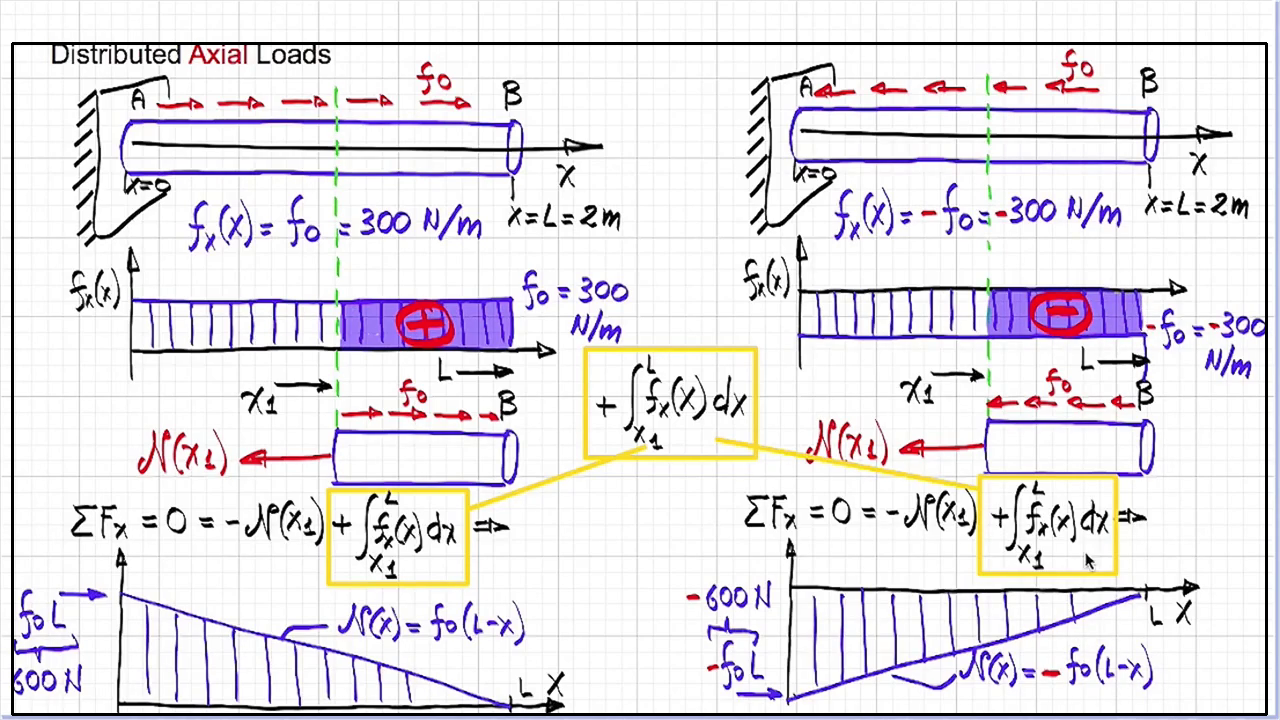 Distributed Axial Loads
A f0 B
x=0 X
x=L=2m
fx(x)= f0 = 300 N/m
fx(x) f0 = 300 N/m
L
x1 f0 B
N(x1)
ΣFx = 0 = -N(x1) + ∫x1L fx(x) dx ⇒
f0L
600N
N(x) = f0(L-x)
L X
+ ∫x1L fx(x) dx
A f0 B
x=0 X
x=L=2m
fx(x)= -f0 = -300 N/m
fx(x) -f0 = -300 N/m
L
x1 f0 B
N(x1)
ΣFx = 0 = -N(x1) + ∫x1L fx(x) dx ⇒
-600N
-f0L
L X
N(x) = -f0(L-x)